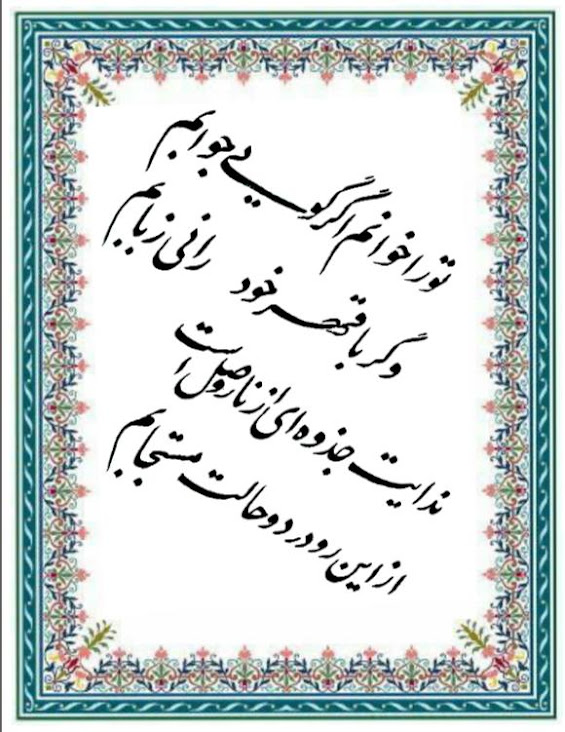 تو را خوانم اگر گویی جوابم
وگر با قهر خود رانی ز بابم
ندایت جذوه‌ای از نار وصل است
از این رو در دو حالت مستجابم